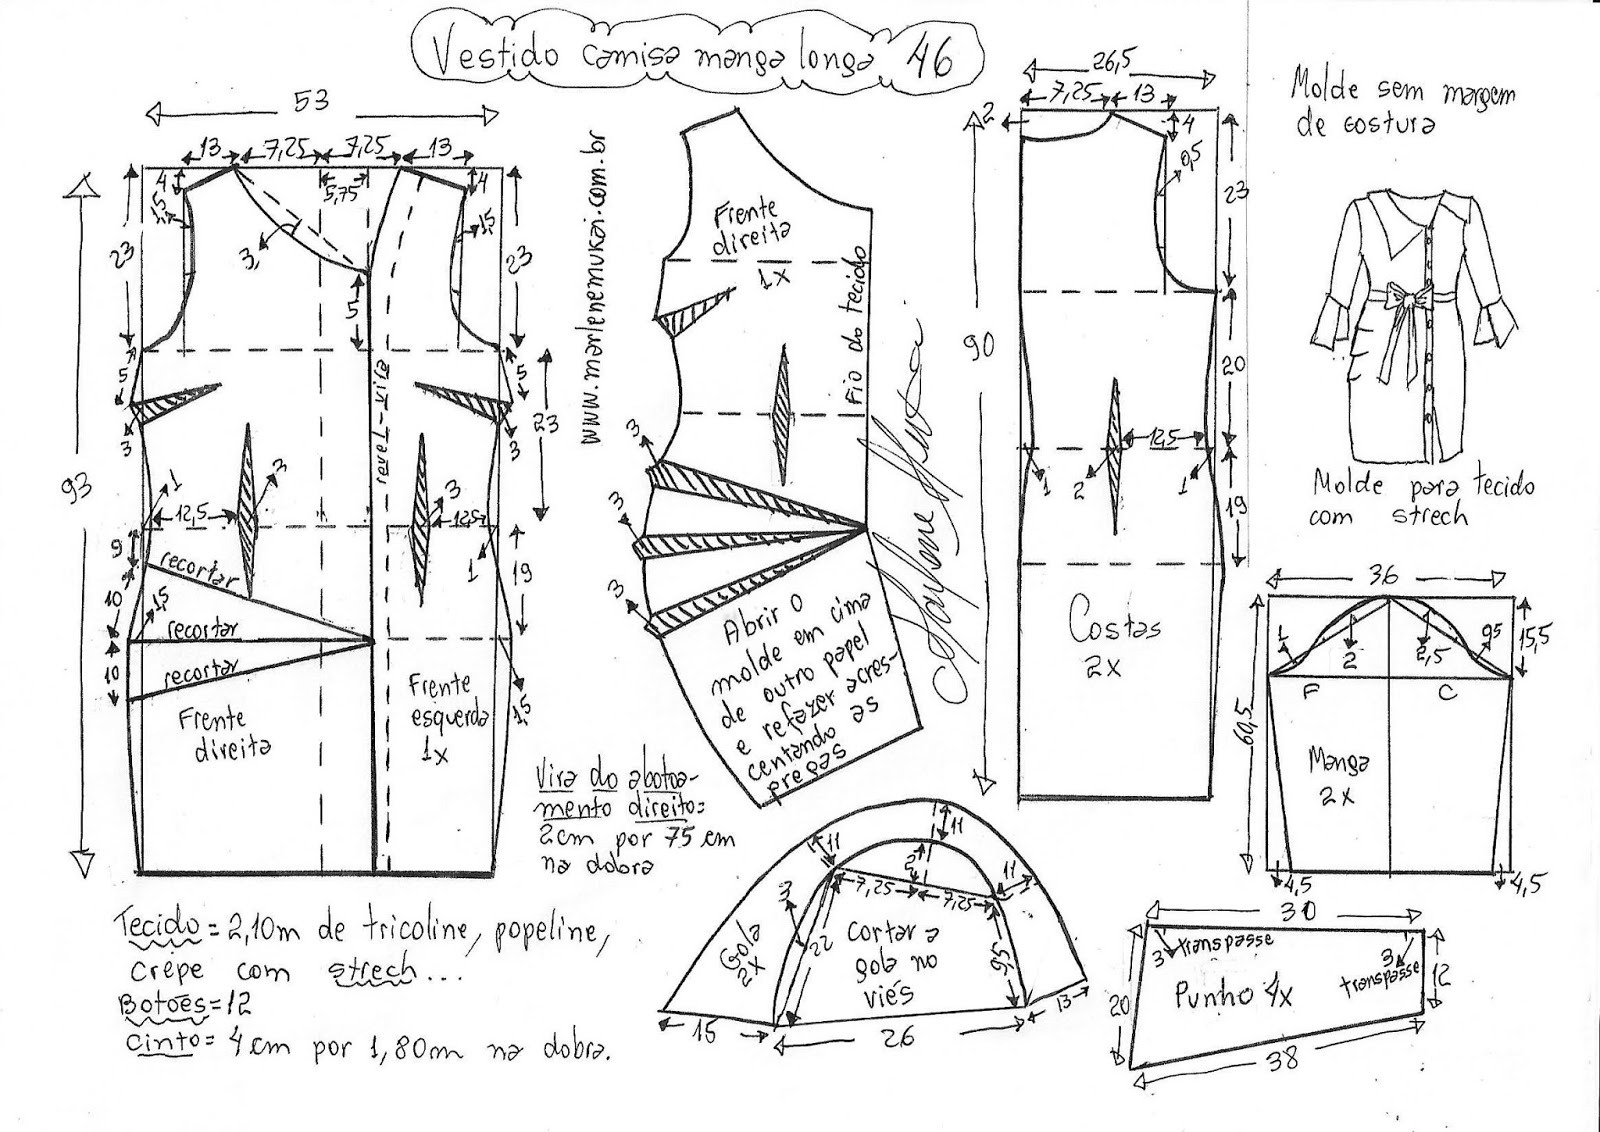 Vestido camisa manga longa 46
53
13 7,25 7,25 13
4 5,75 4
1,5 1,5
3
23 23
5
5 5
3 3
23
revel-vira
93
1 3 3
12,5 12,5
1
9
19
recortar
10
1,5
recortar
10
recortar
1,5
Frente
direita
Frente
esquerda
1x
www.marlenemukai.com.br
Frente
direita
1x
Fio do tecido
3
3
3
Abrir o
molde em cima
de outro papel
e refazer acres-
centando as
pregas
Vira do abotoa-
mento direito=
2cm por 75cm
na dobra
26,5
7,25 13
2 4
0,5
23
90
20
12,5
1 2 1
19
Costas
2x
Molde sem margem
de costura
Molde para tecido
com strech
36
1 2 2,5 0,5
15,5
F C
60,5
Manga
2x
4,5 4,5
11 11 11
2
7,25 7,25
3
22
9,5
Gola
2x
Cortar a
gola no
viés
15 26 13
30
3 transpasse
3
transpasse
Punho 4x
20 12
38
Tecido = 2,10m de tricoline, popeline,
crepe com strech...
Botões=12
Cinto= 4cm por 1,80m na dobra.